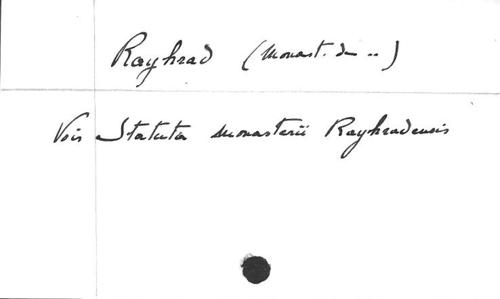 Rayhrad (Monast. du ..)
Vois Statuta monasterii Rayhradensis